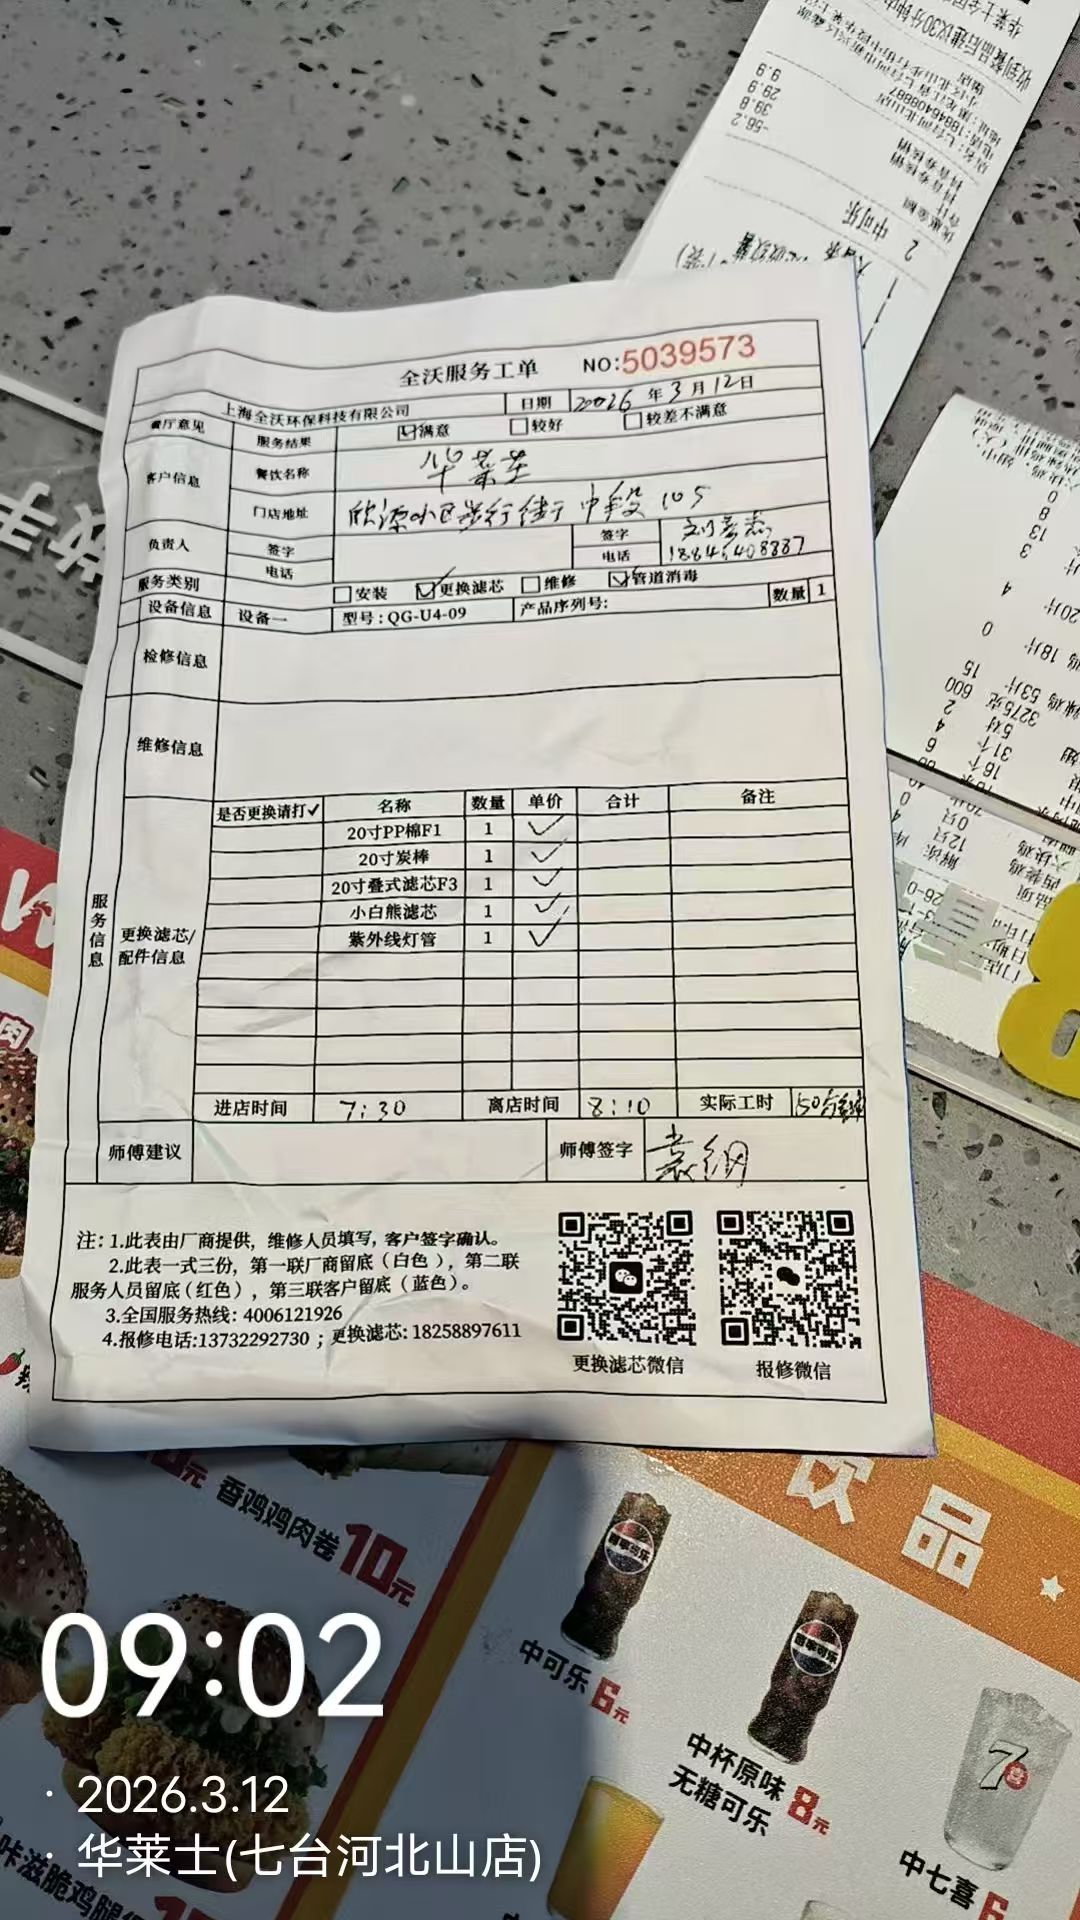 全沃服务工单 NO:5039573
上海全沃环保科技有限公司 日期 2026 年 3 月 12 日
餐厅意见 服务结果 ☑满意 □较好 □较差不满意
客户信息 餐饮名称 华莱士
门店地址 欣源小区步行街中段105
负责人 签字 签字
电话 电话 18846408887
服务类别 □安装 ☑更换滤芯 □维修 ☑管道消毒
设备信息 设备一 型号:QG-U4-09 产品序列号: 数量 1
检修信息
维修信息
服务信息
更换滤芯/配件信息
是否更换请打✓ 名称 数量 单价 合计 备注
20寸PP棉F1 1 ✓
20寸炭棒 1 ✓
20寸叠式滤芯F3 1 ✓
小白熊滤芯 1 ✓
紫外线灯管 1 ✓
进店时间 7:30 离店时间 8:10 实际工时 50分钟
师傅建议 师傅签字 袁纲
注:1.此表由厂商提供,维修人员填写,客户签字确认。
2.此表一式三份,第一联厂商留底(白色),第二联
服务人员留底(红色),第三联客户留底(蓝色)。
3.全国服务热线:4006121926
4.报修电话:13732292730;更换滤芯:18258897611
更换滤芯微信 报修微信
收到餐品后建议30分钟
电话:18846408887
9.9
29.9
39.8
-56.2
2 中可乐
香鸡鸡肉卷 10元
饮品
中可乐 6元
中杯原味
无糖可乐 8元
中七喜 6
09:02
· 2026.3.12
· 华莱士(七台河北山店)